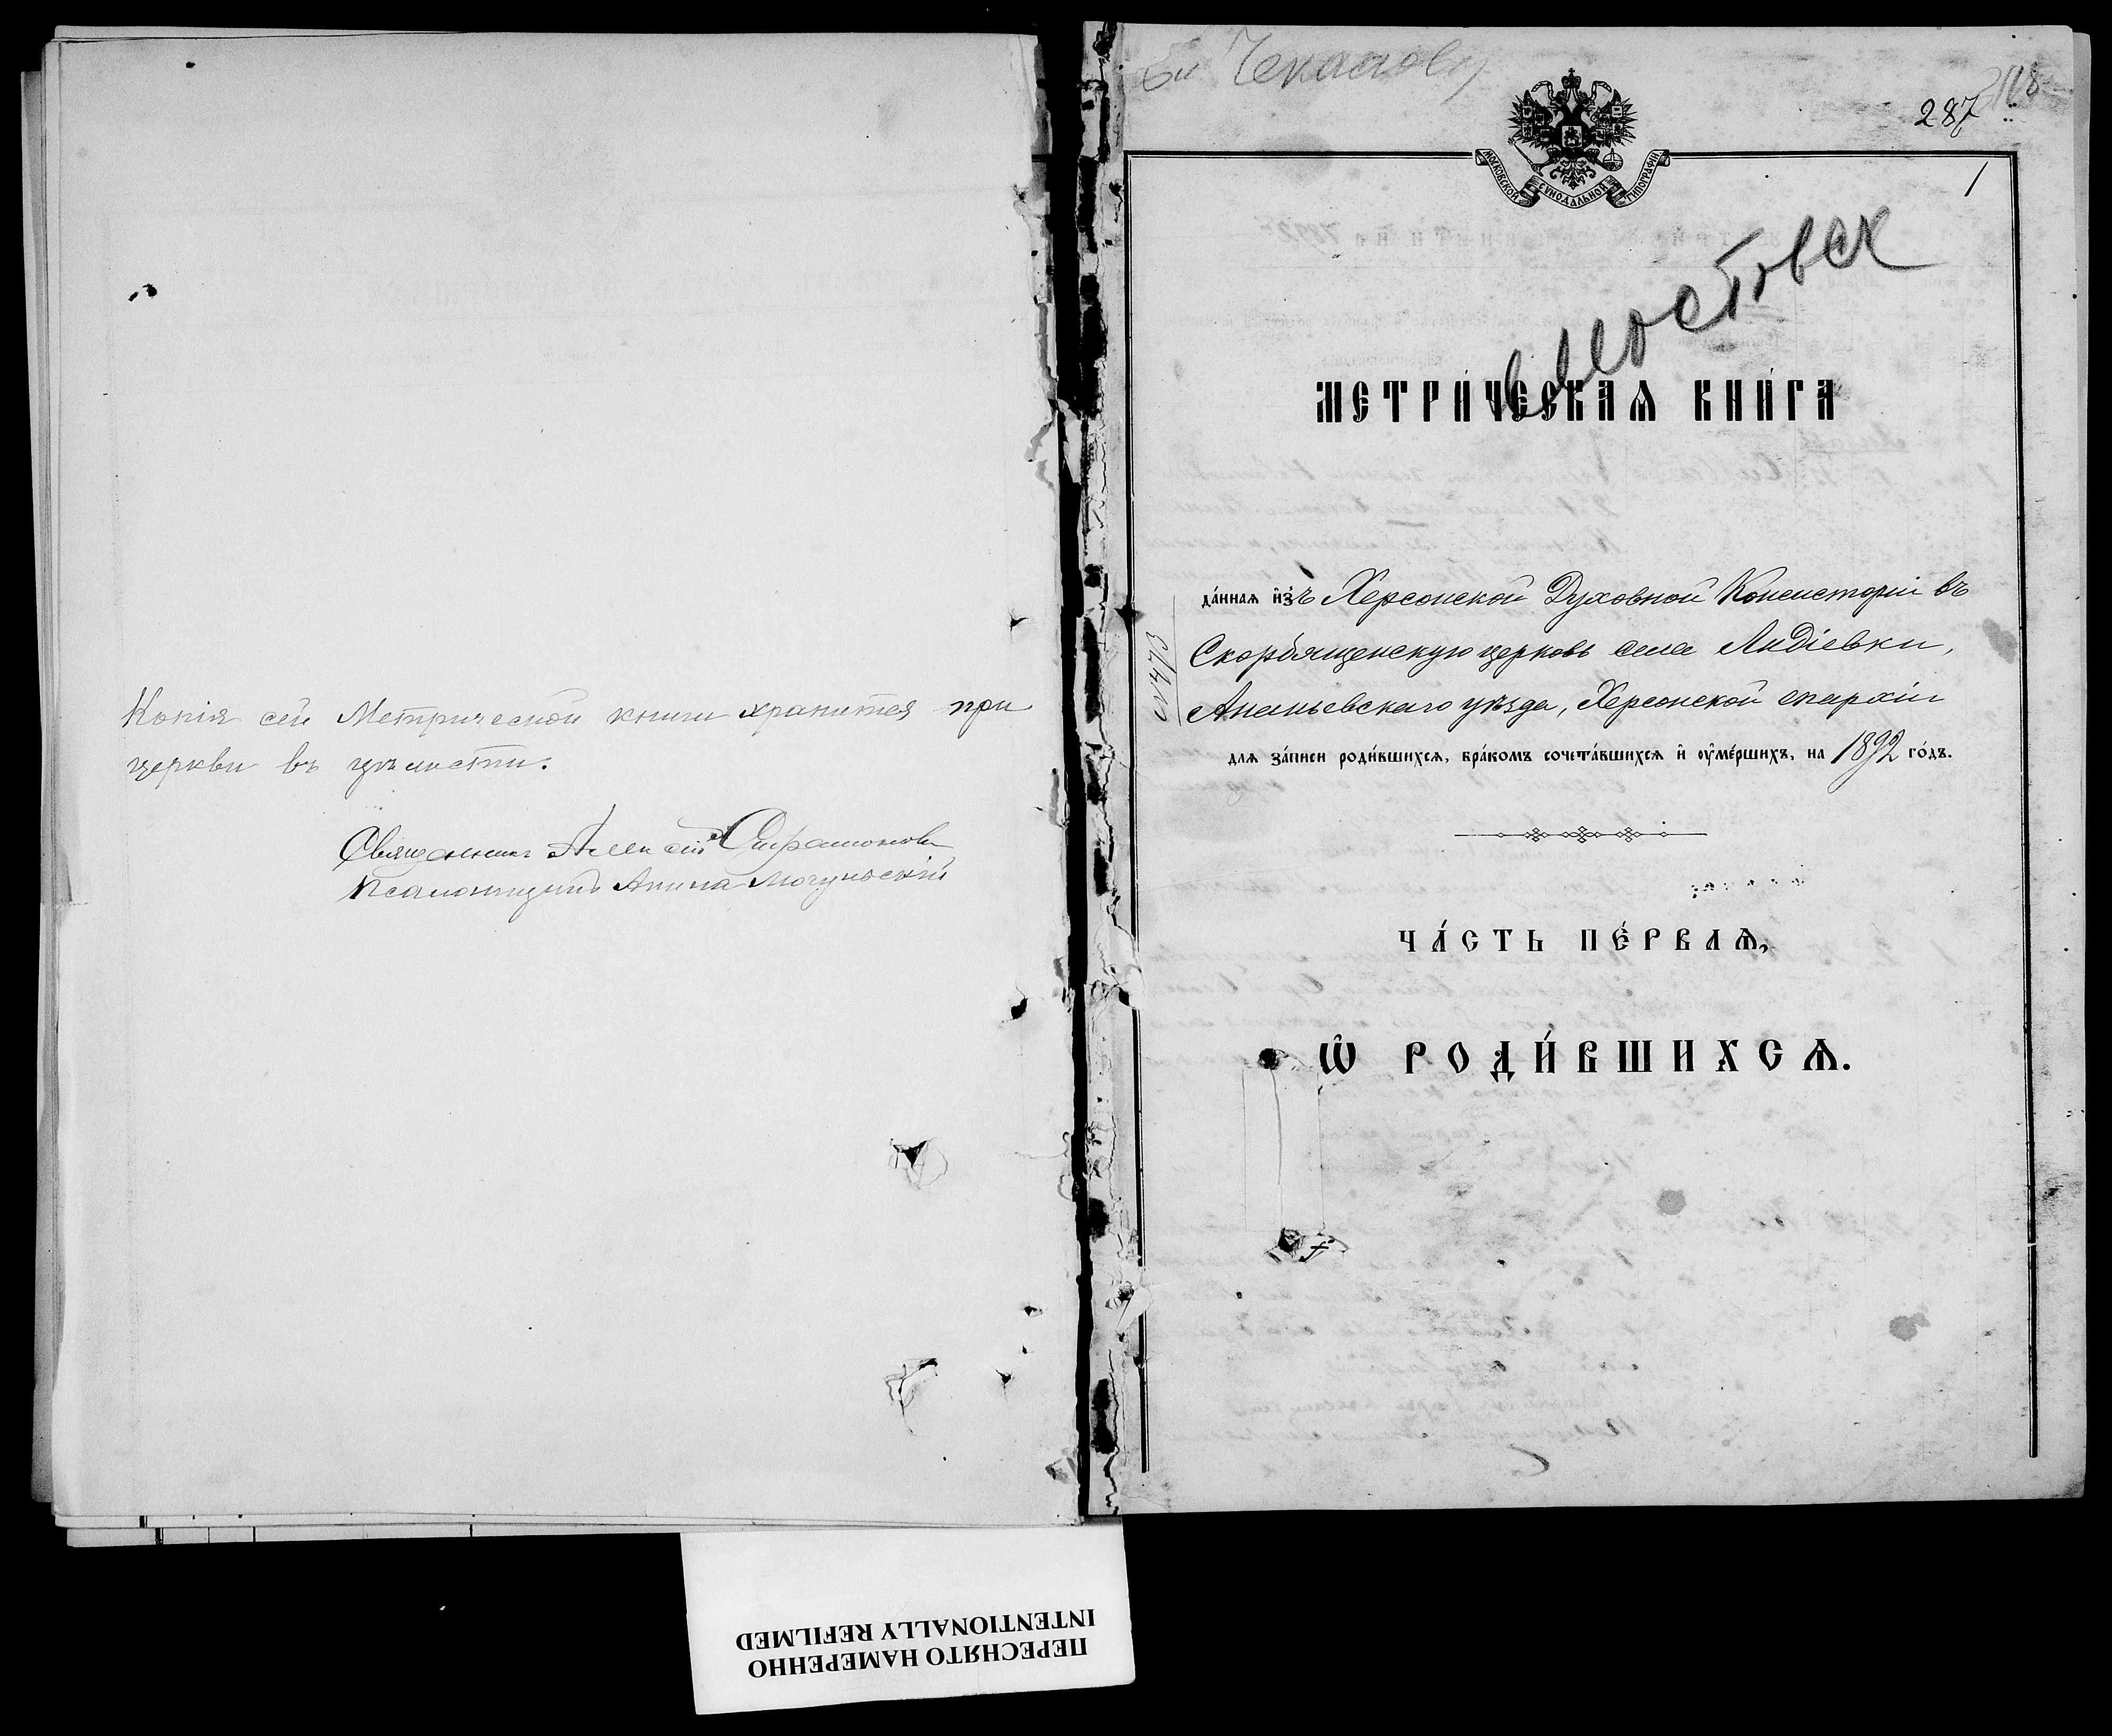 Копія сей Метрической книги хранится при
церкви въ цѣлости.
Священникъ Алексій
Псаломщикъ
287
1
МОСКОВСКОЙ СѴНОДАЛЬНОЙ ТИПОГРАФІИ
МЕТРИ́ЧЕСКАѦ КНИ́ГА
да́ннаѧ и҆зъ Херсонской Духовной Консисторіи въ
Скорбященскую церковь села Лидіевки,
Ананьевскаго уѣзда, Херсонской епархіи
№ 473
длѧ за́писи роди́вшихсѧ, бра́комъ сочета́вшихсѧ и҆ ᲂу҆ме́ршихъ, на 1892 го́дъ.
ЧА́СТЬ ПЕ́РВАѦ,
Ѡ҆ РОДИ́ВШИХСѦ.
ПЕРЕСНЯТО НАМЕРЕННО
INTENTIONALLY REFILMED